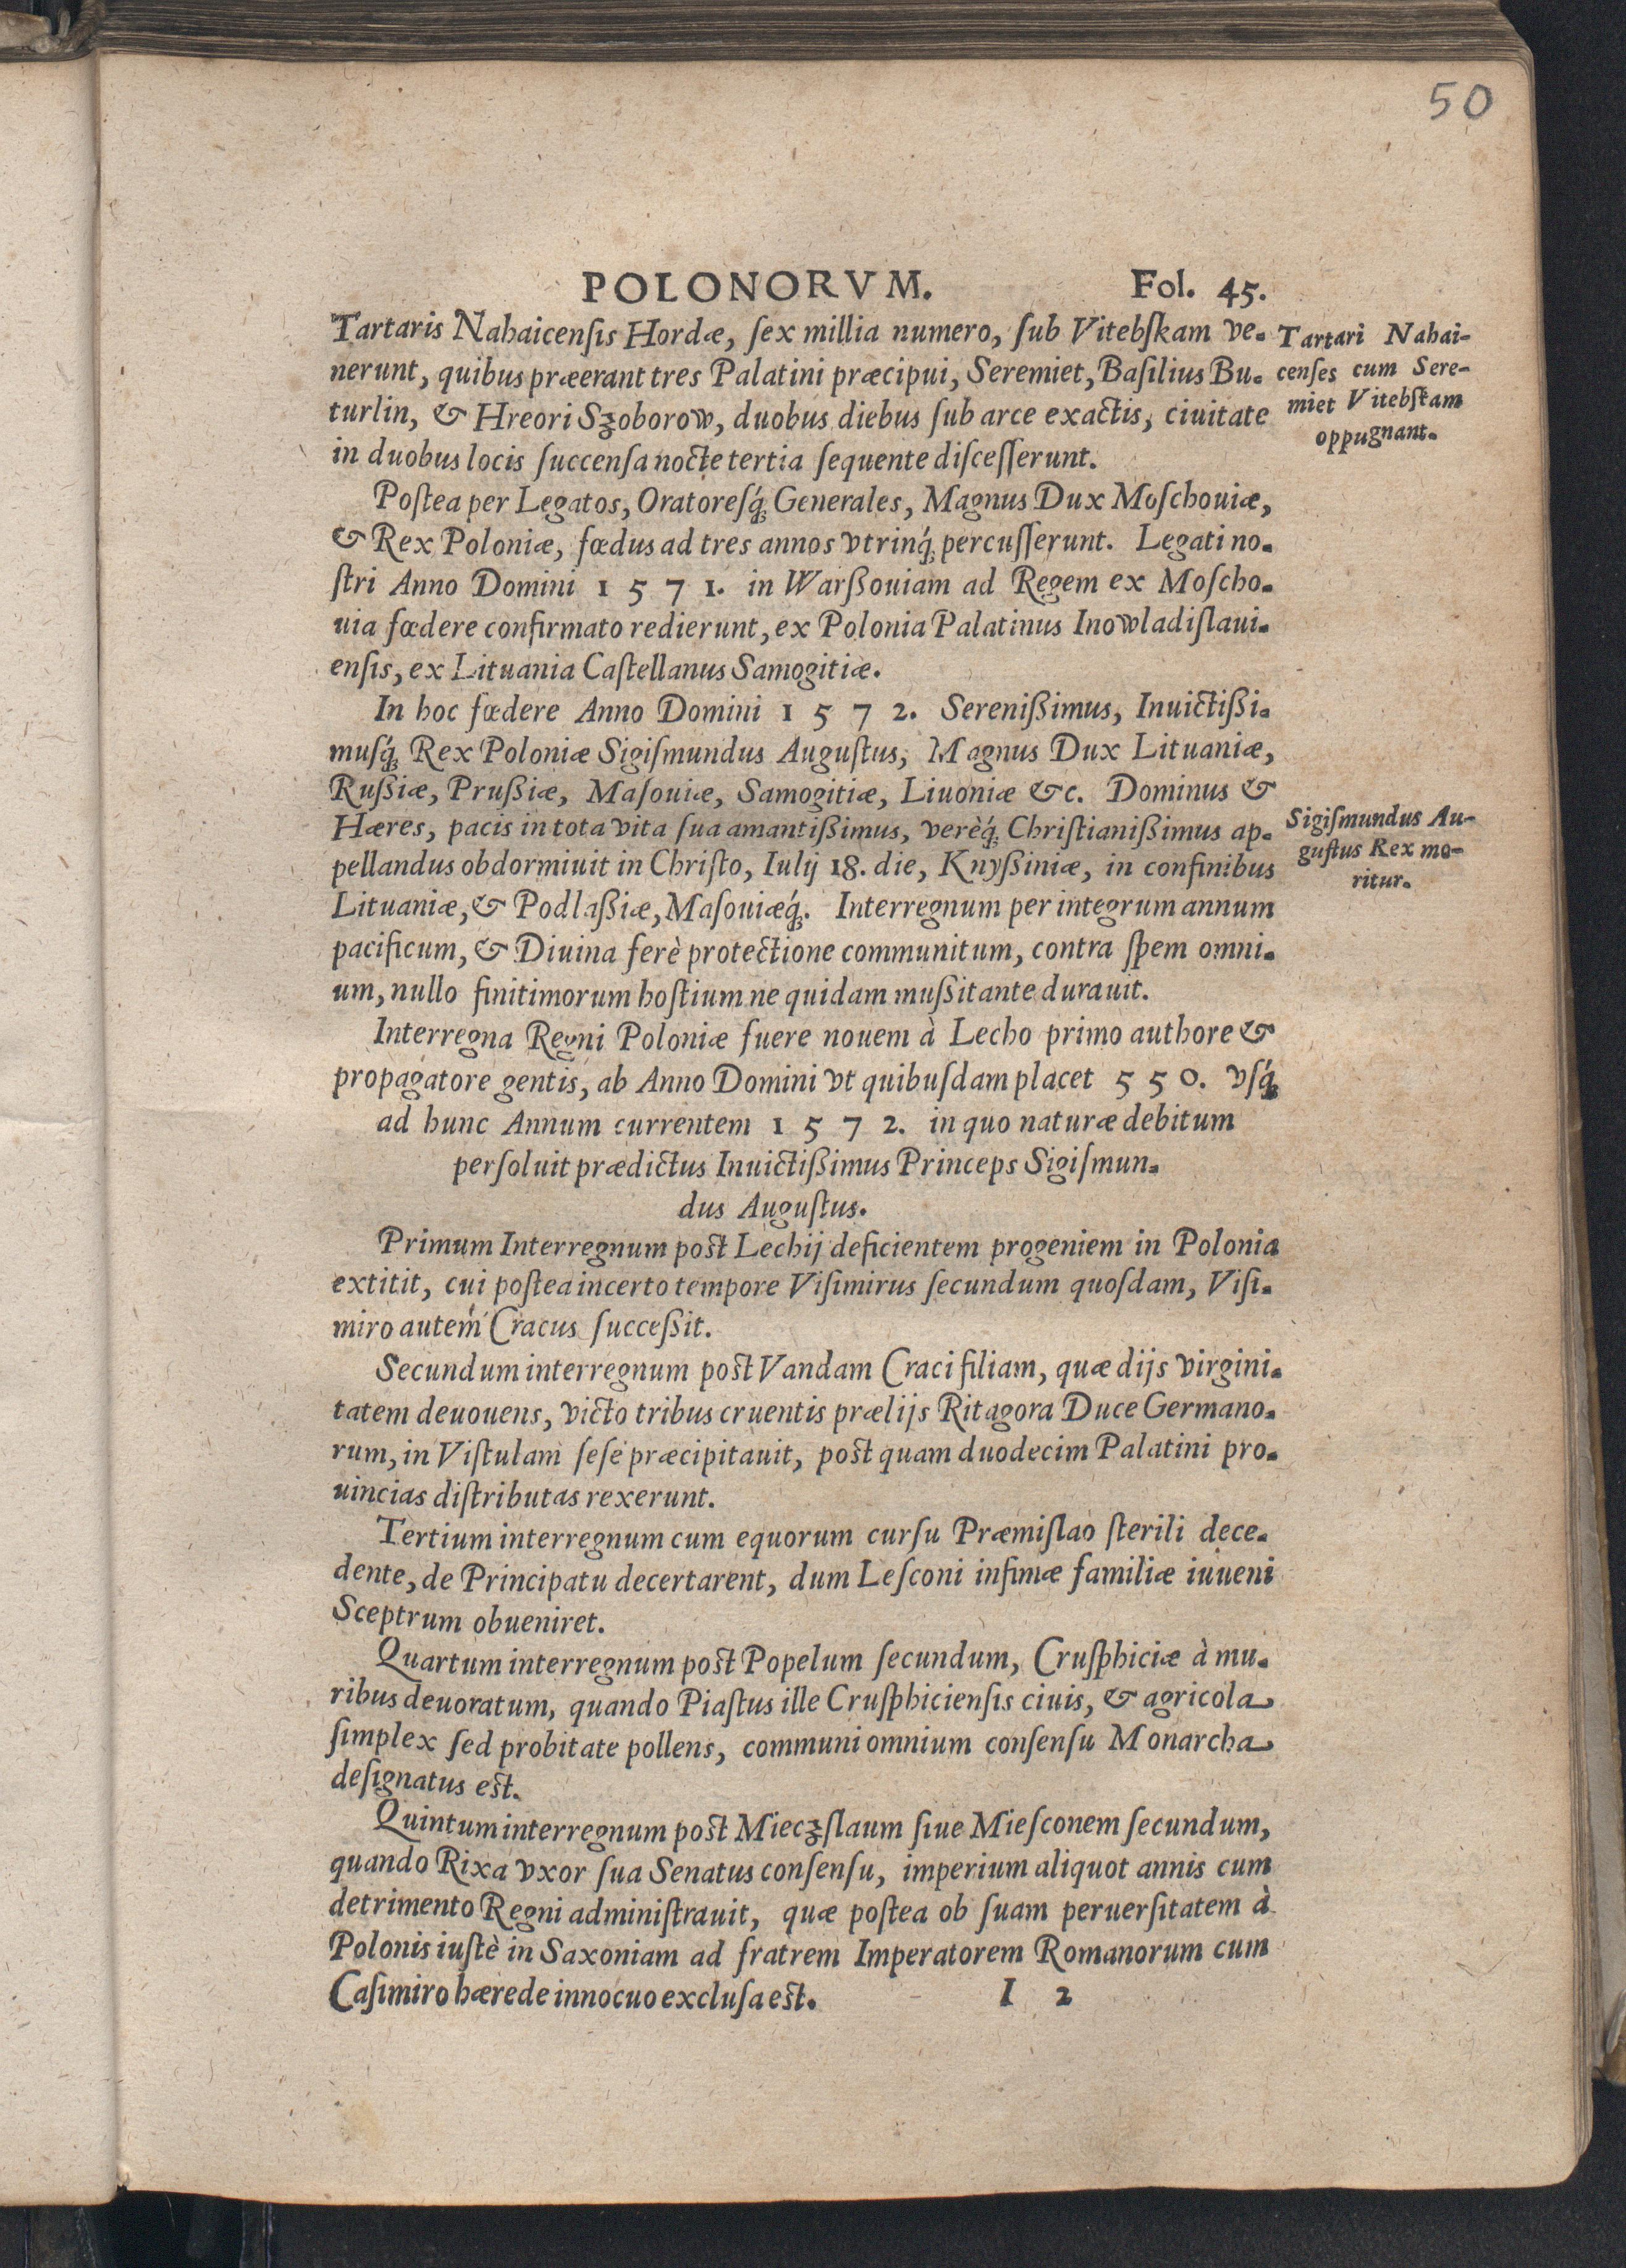 50
POLONORVM. Fol. 45.
Tartaris Nahaicenſis Hordæ, ſex millia numero, ſub Vitebſkam ve-
nerunt, quibus præerant tres Palatini præcipui, Seremiet, Baſilius Bu-
turlin, & Hreori Sʒoborow, duobus diebus ſub arce exactis, ciuitate
in duobus locis ſuccenſa nocte tertia ſequente diſceſſerunt.
Tartari Nahai-
cenſes cum Sere-
miet Vitebſkam
oppugnant.
Poſtea per Legatos, Oratoreſq́; Generales, Magnus Dux Moſchouiæ,
& Rex Poloniæ, fœdus ad tres annos vtrinq́; percuſſerunt. Legati no-
ſtri Anno Domini 1 5 7 1. in Warßouiam ad Regem ex Moſcho-
uia fœdere confirmato redierunt, ex Polonia Palatinus Inowladiſlaui-
enſis, ex Lituania Caſtellanus Samogitiæ.
In hoc fœdere Anno Domini 1 5 7 2. Sereniſſimus, Inuictißi-
muſq́; Rex Poloniæ Sigiſmundus Auguſtus, Magnus Dux Lituaniæ,
Rußiæ, Prußiæ, Maſouiæ, Samogitiæ, Liuoniæ &c. Dominus &
Hæres, pacis in tota vita ſua amantißimus, verèq́; Chriſtianißimus ap-
pellandus obdormiuit in Chriſto, Iulij 18. die, Knyßiniæ, in confinibus
Lituaniæ, & Podlaßiæ, Maſouiæq́;. Interregnum per integrum annum
pacificum, & Diuina ferè protectione communitum, contra ſpem omni-
um, nullo finitimorum hoſtium ne quidam mußitante durauit.
Sigiſmundus Au-
guſtus Rex mo-
ritur.
Interregna Regni Poloniæ fuere nouem à Lecho primo authore &
propagatore gentis, ab Anno Domini vt quibuſdam placet 5 5 0. vſq́;
ad hunc Annum currentem 1 5 7 2. in quo naturæ debitum
perſoluit prædictus Inuictißimus Princeps Sigiſmun-
dus Auguſtus.
Primum Interregnum poſt Lechij deficientem progeniem in Polonia
extitit, cui poſtea incerto tempore Viſimirus ſecundum quoſdam, Viſi-
miro autem Cracus ſucceßit.
Secundum interregnum poſt Vandam Craci filiam, quæ dijs virgini-
tatem deuouens, victo tribus cruentis prælijs Ritagora Duce Germano-
rum, in Viſtulam ſeſe præcipitauit, poſt quam duodecim Palatini pro-
uincias diſtributas rexerunt.
Tertium interregnum cum equorum curſu Præmiſlao ſterili dece-
dente, de Principatu decertarent, dum Leſconi infimæ familiæ iuueni
Sceptrum obueniret.
Quartum interregnum poſt Popelum ſecundum, Cruſphiciæ à mu-
ribus deuoratum, quando Piaſtus ille Cruſphicienſis ciuis, & agricola
ſimplex ſed probitate pollens, communi omnium conſenſu Monarcha
deſignatus eſt.
Quintum interregnum poſt Miecʒſlaum ſiue Mieſconem ſecundum,
quando Rixa vxor ſua Senatus conſenſu, imperium aliquot annis cum
detrimento Regni adminiſtrauit, quæ poſtea ob ſuam peruerſitatem à
Polonis iuſtè in Saxoniam ad fratrem Imperatorem Romanorum cum
Caſimiro hærede innocuo excluſa eſt. I 2